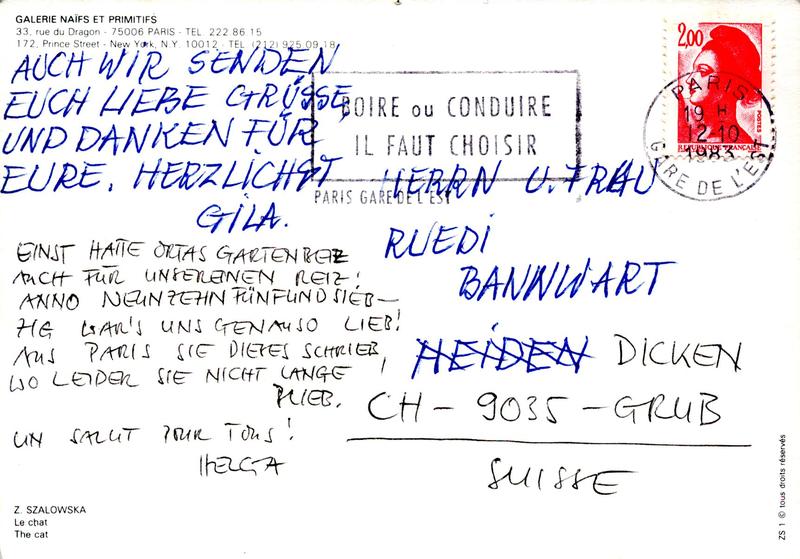 GALERIE NAÏFS ET PRIMITIFS
33, rue du Dragon - 75006 PARIS - TEL. 222 86 15
172, Prince Street - New York, N.Y. 10012 - TEL (212) 925 09 18
AUCH WIR SENDEN
EUCH LIEBE GRÜSSE
UND DANKEN FÜR
EURE. HERZLICHST
GILA.
EINST HATTE ORTAS GARTENBEIZ
AUCH FÜR UNSEREINEN REIZ!
ANNO NEUNZEHNFÜNFUNDSIEB-
ZIG WAR'S UNS GENAUSO LIEB!
AUS PARIS SIE DIESES SCHRIEB,
WO LEIDER SIE NICHT LANGE
BLIEB.
UN SALUT POUR TOUS!
HELGA
Z. SZALOWSKA
Le chat
The cat
BOIRE ou CONDUIRE
IL FAUT CHOISIR
PARIS GARE DE L'EST
2,00
POSTES
REPUBLIQUE FRANÇAISE
PARIS
19 H
12-10
1983
GARE DE L'EST
HERRN U. FRAU
RUEDI
BANNWART
HEIDEN DICKEN
CH - 9035 - GRUB
SUISSE
ZS 1 © tous droits réservés